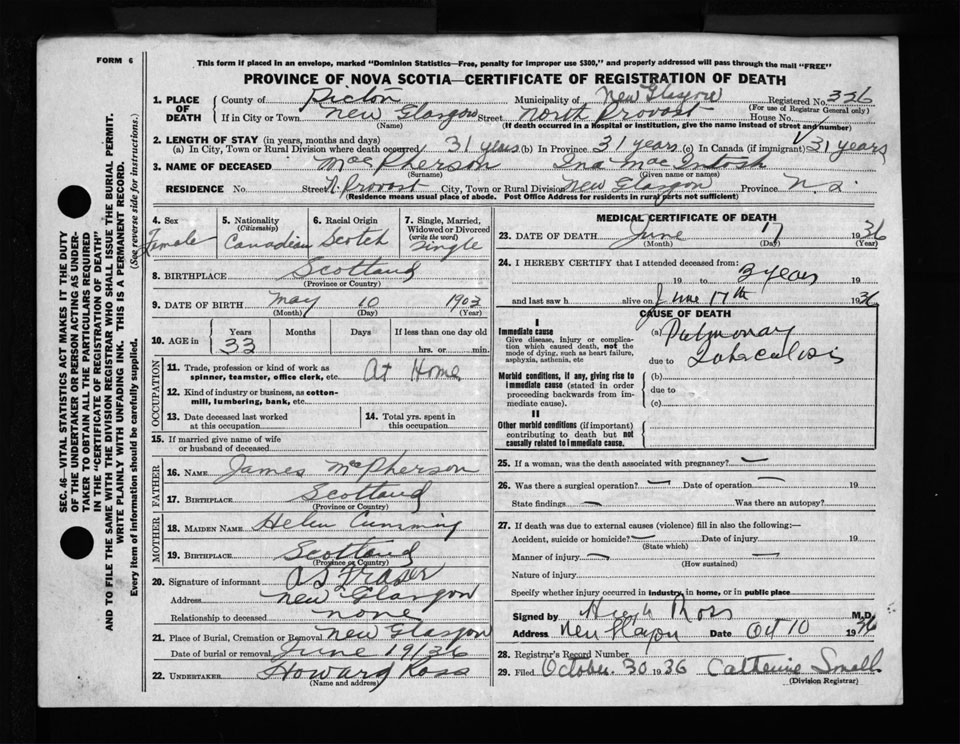 FORM 6
This form if placed in an envelope, marked "Dominion Statistics—Free, penalty for improper use $300," and properly addressed will pass through the mail "FREE"
PROVINCE OF NOVA SCOTIA—CERTIFICATE OF REGISTRATION OF DEATH
SEC. 46—VITAL STATISTICS ACT MAKES IT THE DUTY
OF THE UNDERTAKER OR PERSON ACTING AS UNDER-
TAKER TO OBTAIN ALL THE PARTICULARS REQUIRED
IN THE "CERTIFICATE OF REGISTRATION OF DEATH"
AND TO FILE THE SAME WITH THE DIVISION REGISTRAR WHO SHALL ISSUE THE BURIAL PERMIT.
WRITE PLAINLY WITH UNFADING INK. THIS IS A PERMANENT RECORD.
Every item of information should be carefully supplied. (See reverse side for instructions.)
1. PLACE OF DEATH County of Pictou Municipality of New Glasgow Registered No. 326
(For use of Registrar General only)
If in City or Town New Glasgow Street North Provost House No.
(Name) (If death occurred in a Hospital or institution, give the name instead of street and number)
2. LENGTH OF STAY (in years, months and days)
(a) In City, Town or Rural Division where death occurred 31 years (b) In Province 31 years (c) In Canada (if immigrant) 31 years
3. NAME OF DECEASED MacPherson Ina MacIntosh
(Surname) (Given name or names)
RESIDENCE No. Street N. Provost City, Town or Rural Division New Glasgow Province N.S.
(Residence means usual place of abode. Post Office Address for residents in rural parts not sufficient)
4. Sex Female
5. Nationality (Citizenship) Canadian
6. Racial Origin Scotch
7. Single, Married, Widowed or Divorced (write the word) Single
8. BIRTHPLACE Scotland
(Province or Country)
9. DATE OF BIRTH May 10 1903
(Month) (Day) (Year)
10. AGE in Years 33 Months Days If less than one day old
hrs. or min.
OCCUPATION
11. Trade, profession or kind of work as spinner, teamster, office clerk, etc. At Home
12. Kind of industry or business, as cotton-mill, lumbering, bank, etc.
13. Date deceased last worked at this occupation
14. Total yrs. spent in this occupation
15. If married give name of wife or husband of deceased
FATHER
16. NAME James McPherson
17. BIRTHPLACE Scotland
(Province or Country)
MOTHER
18. MAIDEN NAME Helen Cumming
19. BIRTHPLACE Scotland
(Province or Country)
20. Signature of informant A S Fraser
Address New Glasgow
Relationship to deceased none
21. Place of Burial, Cremation or Removal New Glasgow
Date of burial or removal June 19/36
22. UNDERTAKER Howard Ross
(Name and address)
MEDICAL CERTIFICATE OF DEATH
23. DATE OF DEATH June 17 1936
(Month) (Day) (Year)
24. I HEREBY CERTIFY that I attended deceased from:
19 to 3 years
and last saw h alive on June 17th 1936
CAUSE OF DEATH
I
Immediate cause (a) Pulmonary
Give disease, injury or complication which caused death, not the mode of dying, such as heart failure, asphyxia, asthenia, etc
due to Tuberculosis
Morbid conditions, if any, giving rise to immediate cause (stated in order proceeding backwards from immediate cause).
(b)
due to
(c)
II
Other morbid conditions (if important) contributing to death but not causally related to immediate cause.
25. If a woman, was the death associated with pregnancy? —
26. Was there a surgical operation? — Date of operation — 19
State findings — Was there an autopsy?
27. If death was due to external causes (violence) fill in also the following:—
Accident, suicide or homicide? — Date of injury 19
(State which)
Manner of injury — —
(How sustained)
Nature of injury
Specify whether injury occurred in industry, in home, or in public place
Signed by Hugh Ross M.D.
Address New Glasgow Date Oct 10 1936
28. Registrar's Record Number
29. Filed October 30 1936 Catherine Small
(Division Registrar)